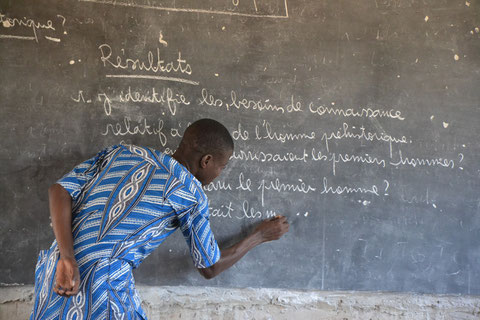 torique?
Résultats
1- j'identifie les besoins de connaissance
relatif à de l'homme préhistorique.
nourrissaient les premiers hommes?
le premier homme?
était les m